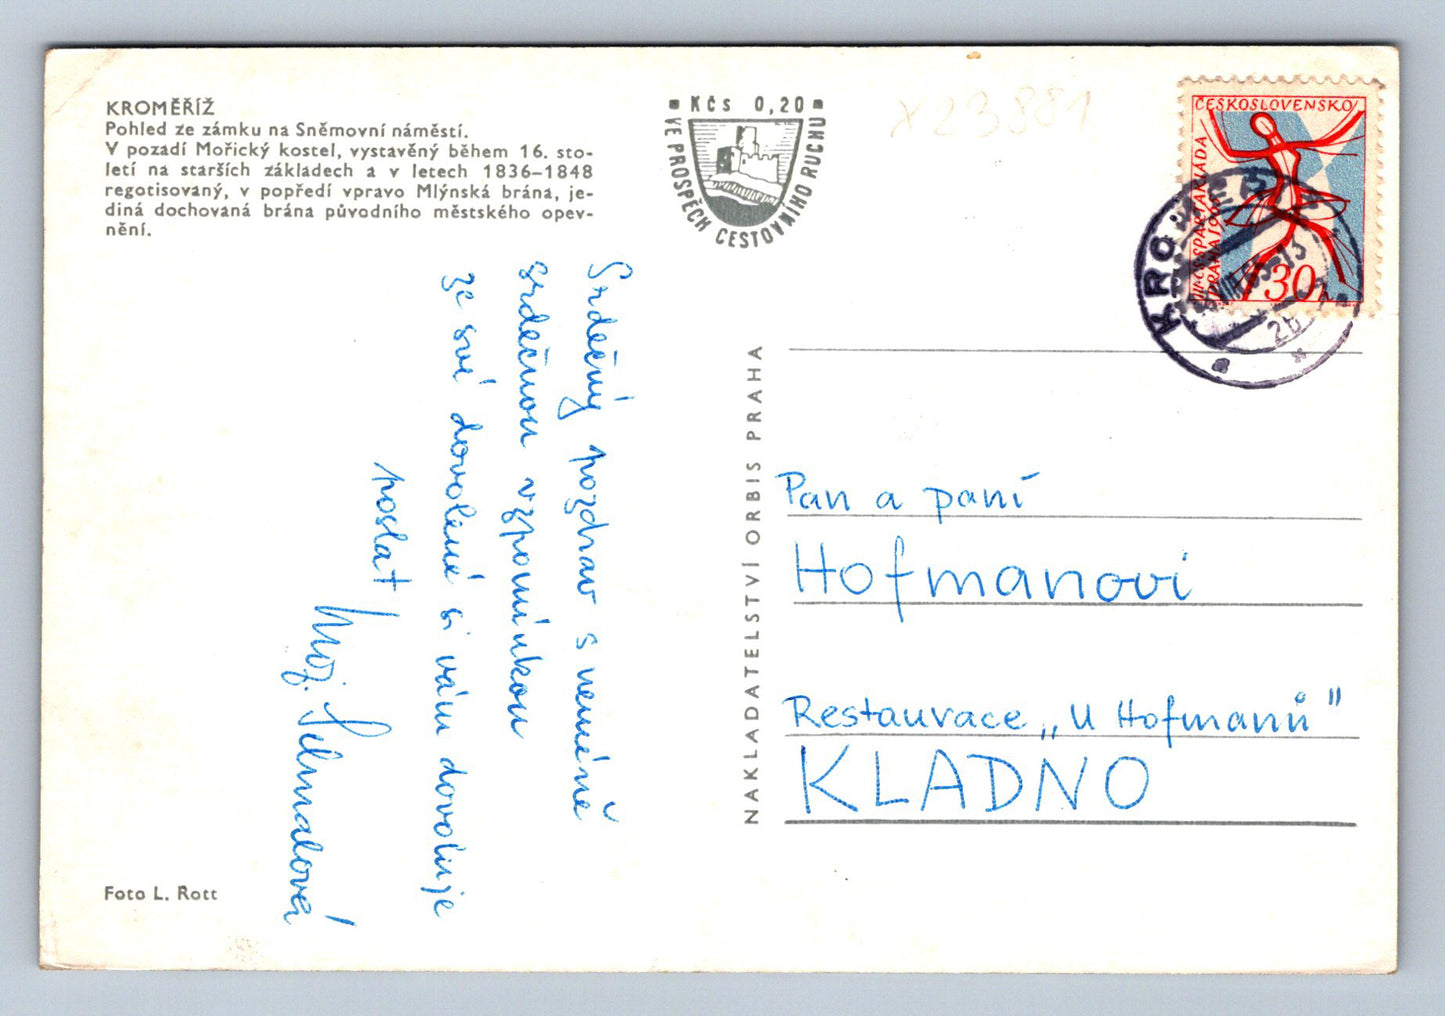 KROMĚŘÍŽ
Pohled ze zámku na Sněmovní náměstí.
V pozadí Mořický kostel, vystavěný během 16. sto-
letí na starších základech a v letech 1836–1848
regotisovaný, v popředí vpravo Mlýnská brána, je-
diná dochovaná brána původního městského opev-
nění.
Kčs 0,20
VE PROSPĚCH CESTOVNÍHO RUCHU
X23881
ČESKOSLOVENSKO
SPARTAKIÁDA
PRAHA
30
Srdečný pozdrav s neméně
srdečnou vzpomínkou
ze své dovolené si vám dovoluje
poslat
NAKLADATELSTVÍ ORBIS PRAHA
Pan a paní
Hofmanovi
Restaurace „U Hofmanů"
KLADNO
Foto L. Rott